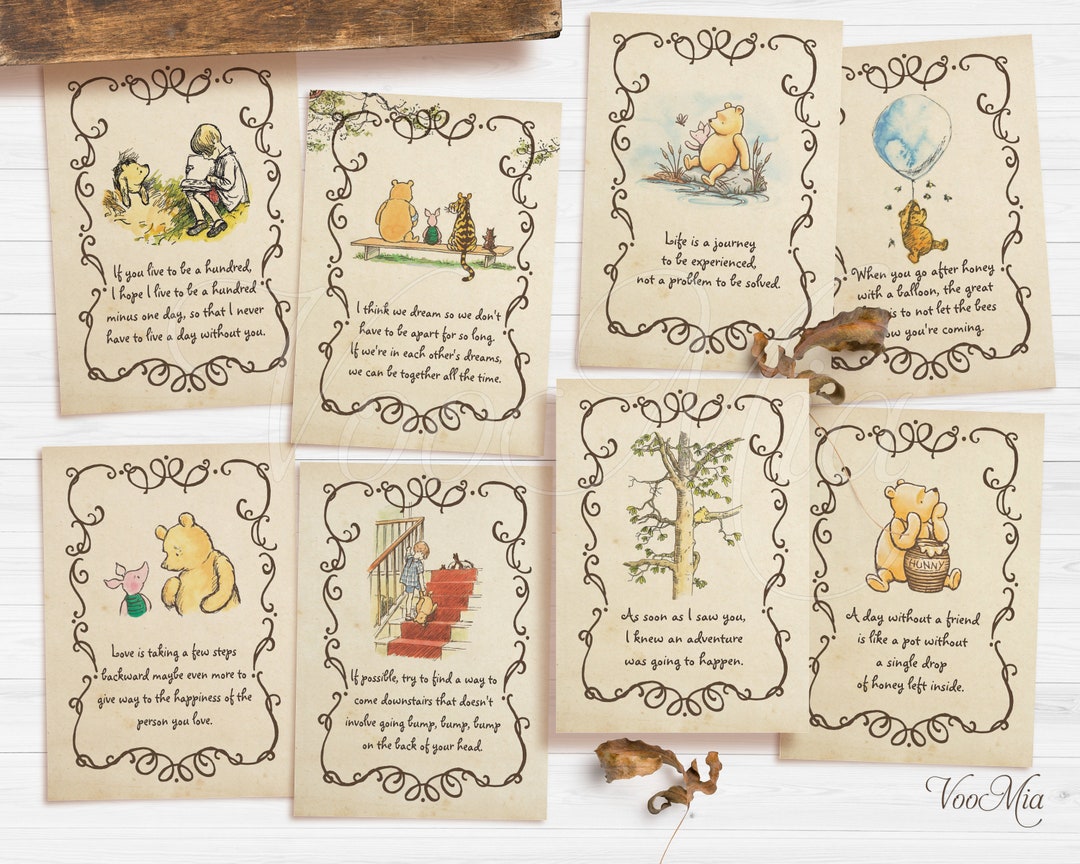 If you live to be a hundred,
I hope I live to be a hundred
minus one day, so that I never
have to live a day without you.
I think we dream so we don't
have to be apart for so long.
If we're in each other's dreams,
we can be together all the time.
Life is a journey
to be experienced,
not a problem to be solved.
When you go after honey
with a balloon, the great
is to not let the bees
you're coming.
Love is taking a few steps
backward maybe even more to
give way to the happiness of the
person you love.
If possible, try to find a way to
come downstairs that doesn't
involve going bump, bump, bump
on the back of your head.
As soon as I saw you,
I knew an adventure
was going to happen.
HUNNY
A day without a friend
is like a pot without
a single drop
of honey left inside.
VooMia
VooMia